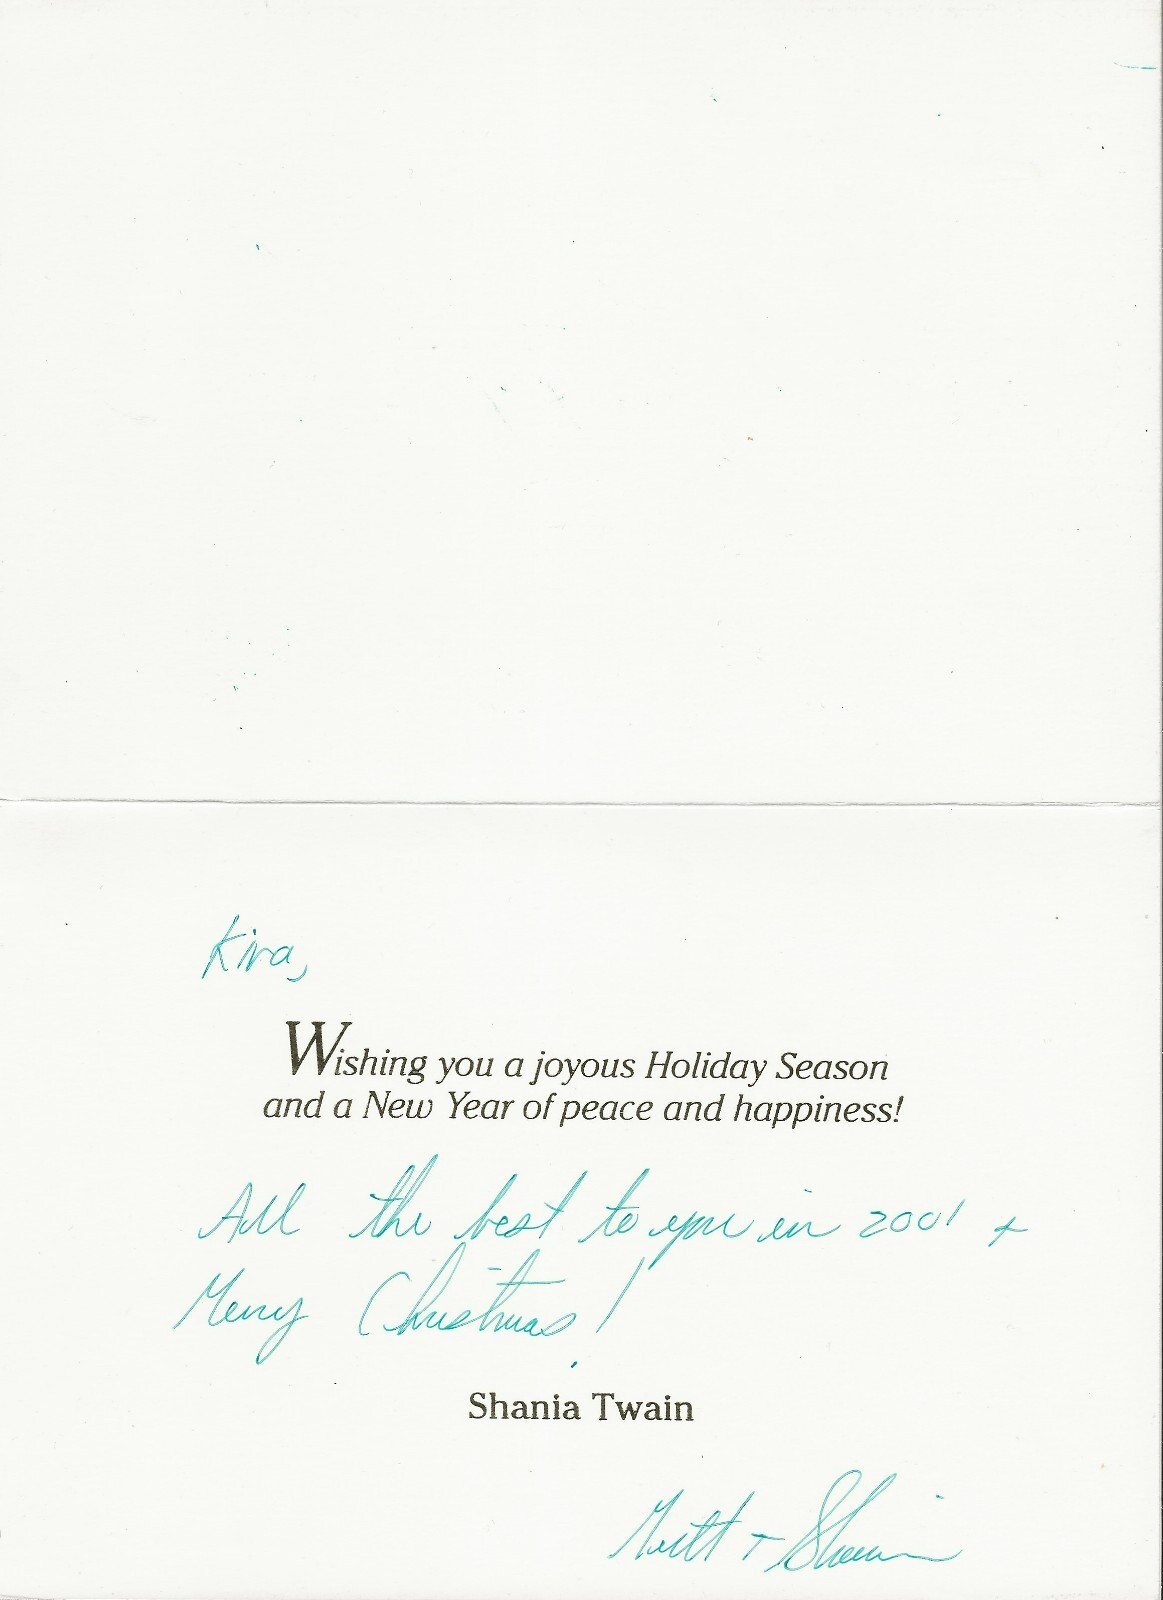 Kira,
Wishing you a joyous Holiday Season
and a New Year of peace and happiness!
All the best to you in 2001 +
Merry Christmas!
Shania Twain
Mutt + Shania